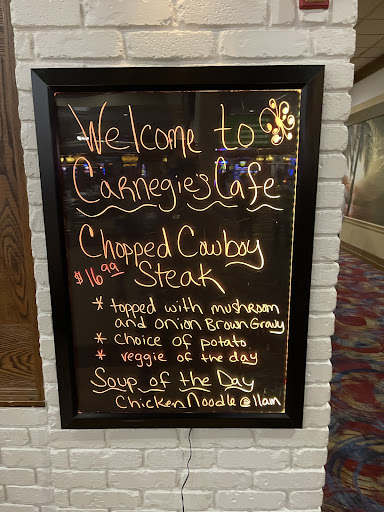 Welcome to
Carnegie's Cafe
Chopped Cowboy
$16.99 Steak
* topped with mushroom
and onion Brown Gravy
* choice of potato
* veggie of the day
Soup of the Day
Chicken Noodle @ 11am